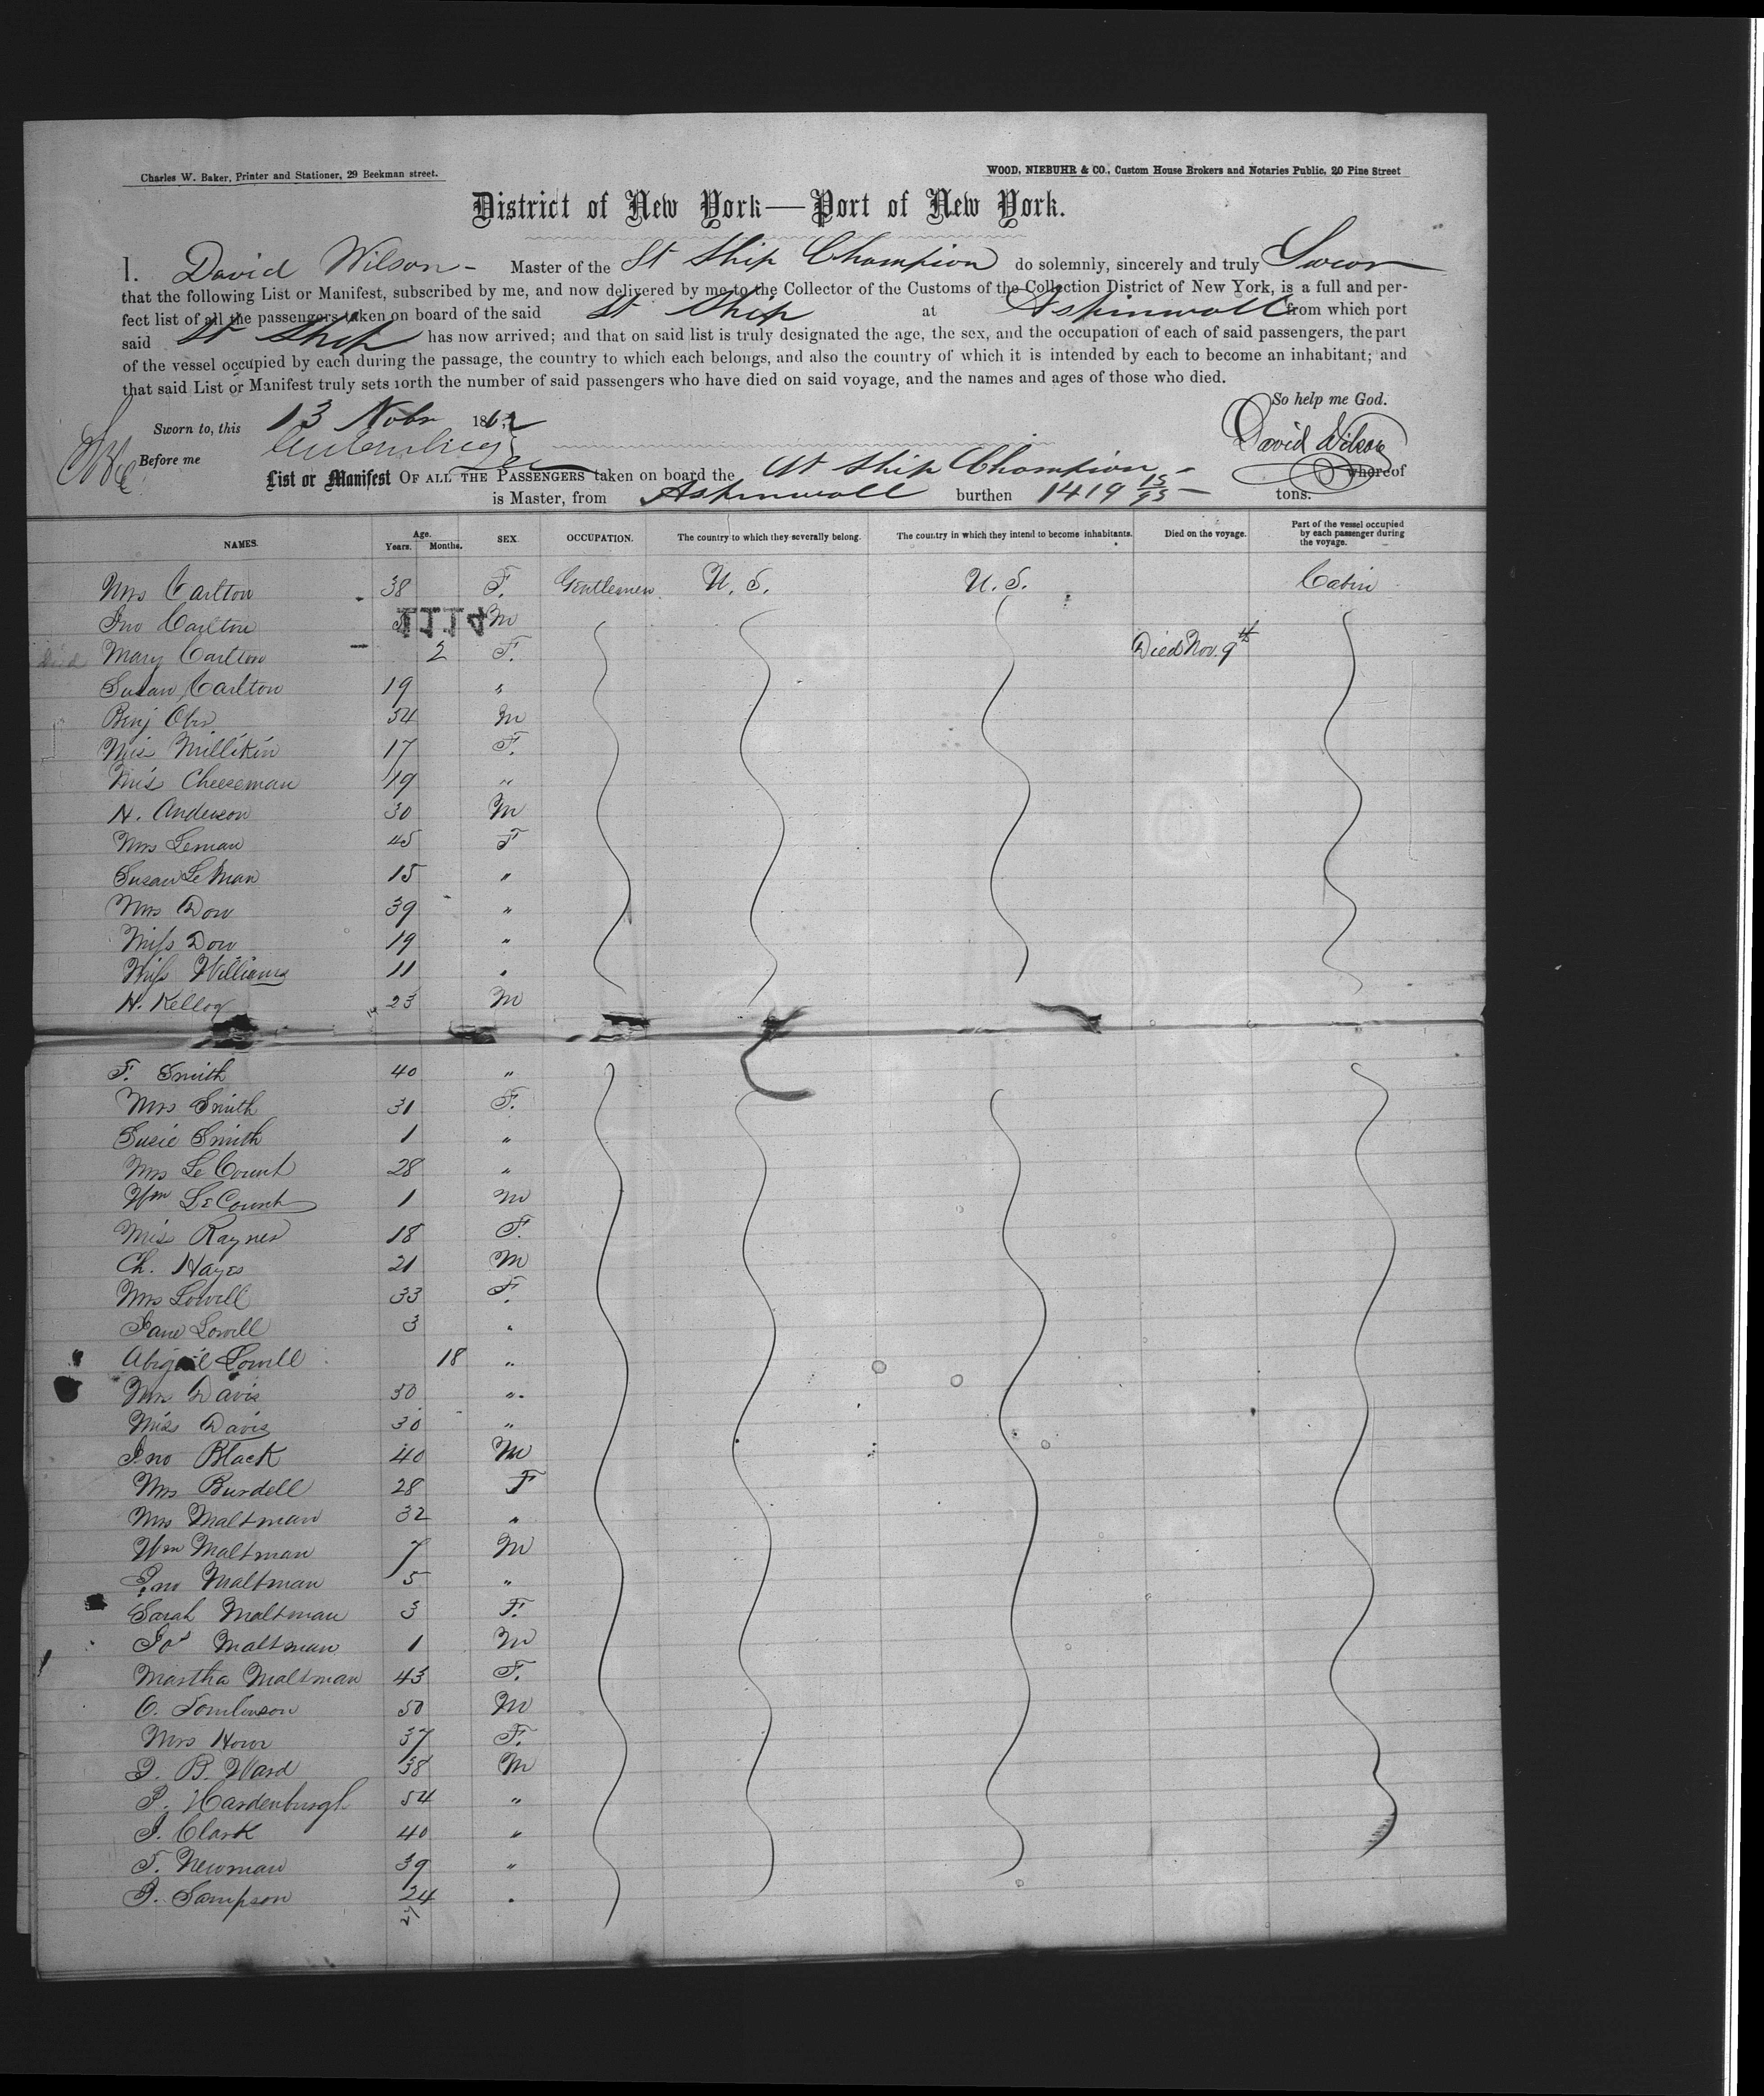 Charles W. Baker, Printer and Stationer, 29 Beekman street.
WOOD, NIEBUHR & CO., Custom House Brokers and Notaries Public, 20 Pine Street
District of New York—Port of New York.
I. David Wilson - Master of the St Ship Champion do solemnly, sincerely and truly Swear
that the following List or Manifest, subscribed by me, and now delivered by me to the Collector of the Customs of the Collection District of New York, is a full and per-
fect list of all the passengers taken on board of the said St Ship at Aspinwall from which port
said St Ship has now arrived; and that on said list is truly designated the age, the sex, and the occupation of each of said passengers, the part
of the vessel occupied by each during the passage, the country to which each belongs, and also the country of which it is intended by each to become an inhabitant; and
that said List or Manifest truly sets forth the number of said passengers who have died on said voyage, and the names and ages of those who died.
So help me God.
Sworn to, this 13 Nobr 1862
David Wilson
Before me
List or Manifest OF ALL THE PASSENGERS taken on board the St Ship Champion - whereof
is Master, from Aspinwall burthen 1419 15/95 - tons.
NAMES. Age. Years. Months. SEX. OCCUPATION. The country to which they severally belong. The country in which they intend to become inhabitants. Died on the voyage. Part of the vessel occupied by each passenger during the voyage.
Mrs Carlton 38 F. Gentlemen U. S. U. S. Cabin
Jno Carlton 1114 M
Died Mary Carlton 2 F. Died Nov. 9th
Susan Carlton 19 "
Benj Ober 54 M
Miss Millikin 17 F.
Miss Cheeseman 19 "
N. Anderson 30 M
Mrs Leman 45 F
Susan LeMan 15 "
Mrs Dow 39 "
Miss Dow 19 "
Miss Williams 11 "
H. Kellog 23 M
F. Smith 40 "
Mrs Smith 31 F.
Susie Smith 1 "
Mrs Le Count 28 "
Wm LeCount 1 M
Miss Raynes 18 F.
Ch. Hayes 21 M
Mrs Lowell 33 F.
Jane Lowell 3 "
Abigail Lowell 18 "
Mrs Davis 50 "
Miss Davis 30 "
Jno Black 40 M
Mrs Burdell 28 F
Mrs Maltman 32 "
Wm Maltman 7 M
Jno Maltman 5 "
Sarah Maltman 3 F.
Jos Maltman 1 M
Martha Maltman 43 F.
O. Tomlinson 50 M
Mrs Howr 37 F.
J. B. Ward 38 M
P. Hardenburgh 54 "
J. Clark 40 "
T. Newman 39 "
J. Sampson 24 "
27